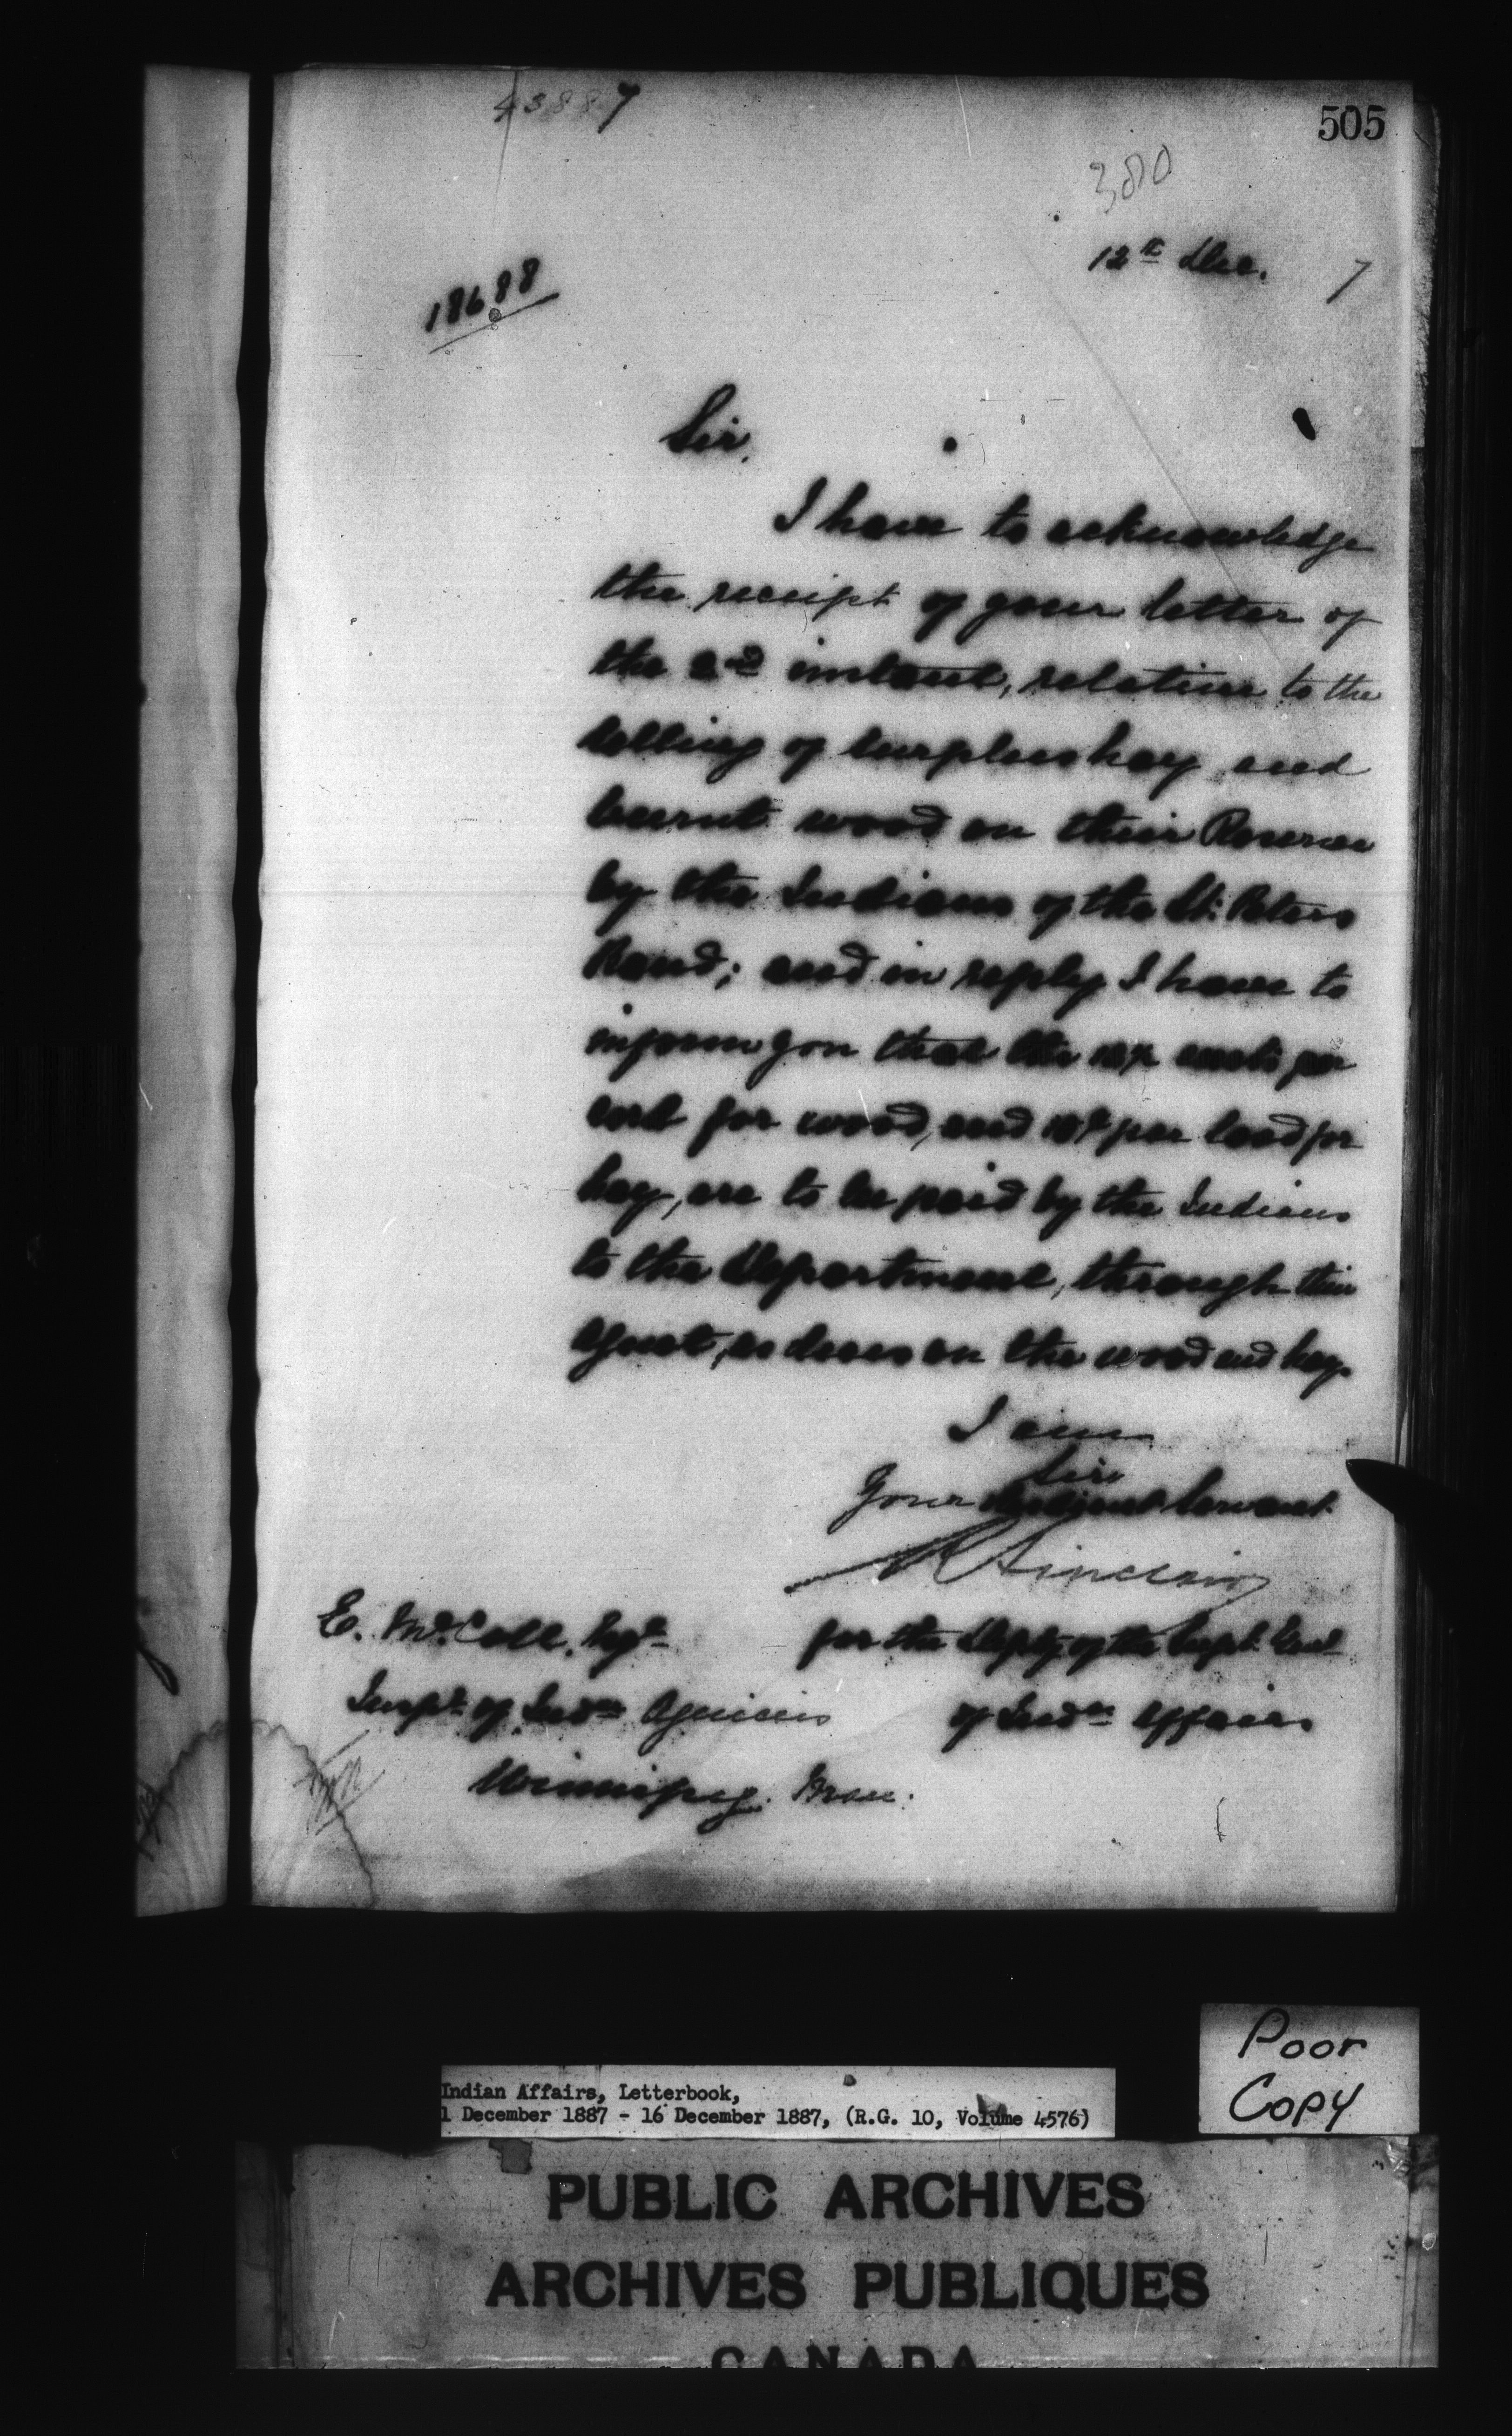 43887
505
380
12th Dec. 7
18688
Sir,
I have to acknowledge
the receipt of your letter of
the 2nd instant, relative to the
selling of surplus hay and
burnt wood on their Reserve
by the Indians of the St. Peters
Band; and in reply I have to
inform you that the cents per
cord for wood, and per load for
hay, are to be paid by the Indians
to the Department, through their
Agent, as dues on the wood and hay.
I am
Sir
Your obedient servant.
R Sinclair
E. McColl, Esqr.
for the Depty of the Supt. Genl
Inspr. of Indn Agencies
of Indn Affairs
Winnipeg. Man.
Poor
Copy
Indian Affairs, Letterbook,
1 December 1887 - 16 December 1887, (R.G. 10, Volume 4576)
PUBLIC ARCHIVES
ARCHIVES PUBLIQUES
CANADA